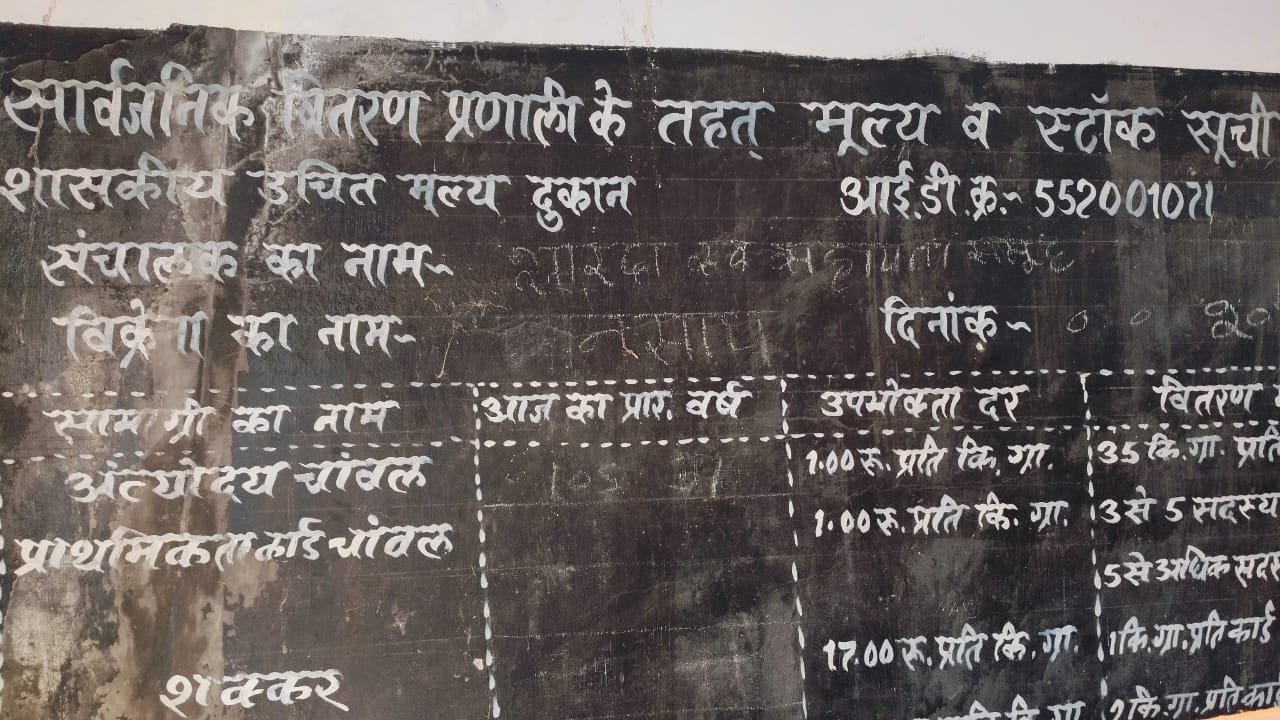 सार्वजनिक वितरण प्रणाली के तहत् मूल्य व स्टॉक सूची
शासकीय उचित मूल्य दुकान आई.डी.क्र.- 552001071
संचालक का नाम-
विक्रेता का नाम- दिनांक-
सामाग्री का नाम आज का प्रार. वर्ष उपभोक्ता दर वितरण
अंत्योदय चांवल 1.00 रू. प्रति कि. ग्रा. 35 कि. गा. प्रति
प्राथमिकता कार्ड चांवल 1.00 रू. प्रति कि. ग्रा. 3 से 5 सदस्य
5 से अधिक
17.00 रू. प्रति कि. ग्रा. 1 कि. गा. प्रति कार्ड
शक्कर 2 कि. गा. प्रति